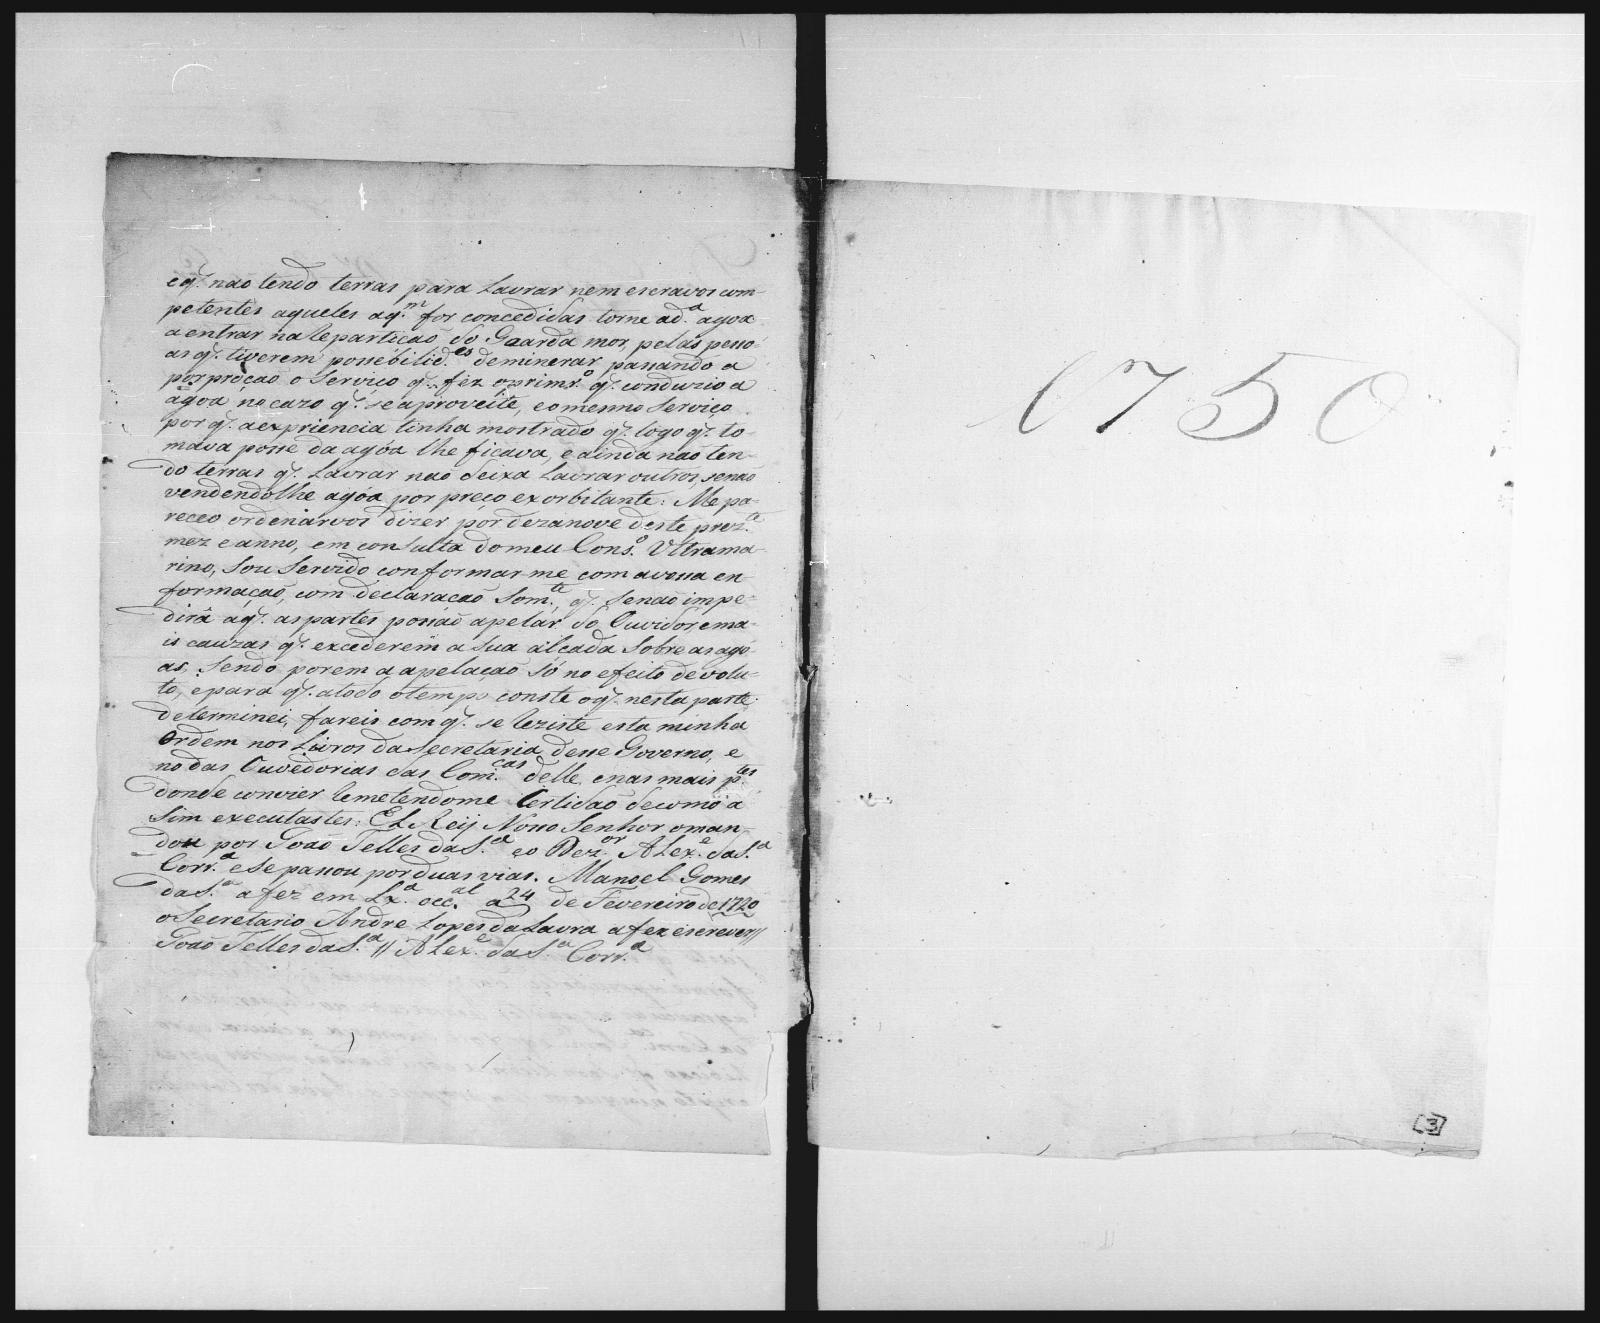 e q.' não tendo terras para Lavrar nem escravos com-
petentes aqueles aq.m for concedidas torne a d.a agoa
a entrar na Repartição do Goarda mor, pelas pesso-
as q.' tiverem possébilid.es deminerar, pagando a
porproção o Serviço q.' fez oprimr.o q.' conduzio a
agoa no cazo q.' se aproveite, eomesmo serviço
por q.' aexpriencia tinha mostrado q.' logo q.' to-
mava posse da agóa lhe ficava, e ainda não ten-
do terras q.' Lavrar não deixa Lavrar outros, senão
vendendolhe agóa por preço exorbitante: Me pa-
receo ordenarvos dizer por dezanove deste prez.te
mez e anno, em consulta domeu Cons.o Vltrama-
rino, Sou Servido conformar-me com avossa en-
formação, com declaracão som.te q.' Senão impe-
dirâ aq.' as partes possão apelar do Ouvidor, ema-
is cauzas q.' excederem a sua alcada Sobre as ago-
as, Sendo porem a apelação só no efeito devolu-
to, epara q.' atodo otempo conste oq.' nesta parte
determinei, fareis com q.' se Reziste esta minha
Ordem nos Livros da Secretaria desse Governo, e
nodas Ouvedorias das Com.cas delle, enas mais p.tes
donde convier Remetendome Certidão decomo a
sim executastes: El Reij Nosso Senhor oman-
dou por João Telles da S.a eo Dez.or Alex.e da S.a
Corr.a e Se passou por duas vias. Manoel Gomes
da S.a a fez em Lx.a occ.al a 24 de Fevereiro de 1720
o Secretario Andre Lopes da Laura afez escrever//
João Telles da S.a // Alex.e da S.a Corr.a
1750
3